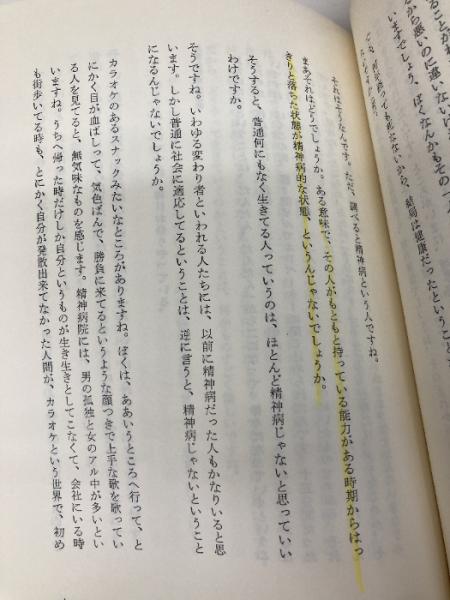 ることがね
から悪いのに違いないけ
いますでしょう、ぼくなんかもその
死なないから、結局は健康だったということ
それはそうなんです。ただ、調べると精神病という人ですね。
まあそれはどうでしょうか。ある意味で、その人がもともと持っている能力がある時期からはっ
きりと落ちた状態が精神病的な状態、というんじゃないでしょうか。
そうすると、普通何にもなく生きてる人っていうのは、ほとんど精神病じゃないと思っていい
わけですか。
そうですね。いわゆる変わり者といわれる人たちには、以前に精神病だった人もかなりいると思
います。しかし普通に社会に適応してるということは、逆に言うと、精神病じゃないということ
になるんじゃないでしょうか。
カラオケのあるスナックみたいなところがありますね。ぼくは、ああいうところへ行って、と
にかく目が血ばしって、気色ばんで、勝負に来てるというような顔つきで上手な歌を歌ってい
る人を見てると、無気味なものを感じます。精神病院には、男の孤独と女のアル中が多いとい
いますね。うちへ帰った時だけしか自分というものが生き生きとしてこなくて、会社にいる時
も街歩いてる時も、とにかく自分が発散出来てなかった人間が、カラオケという世界で、初め